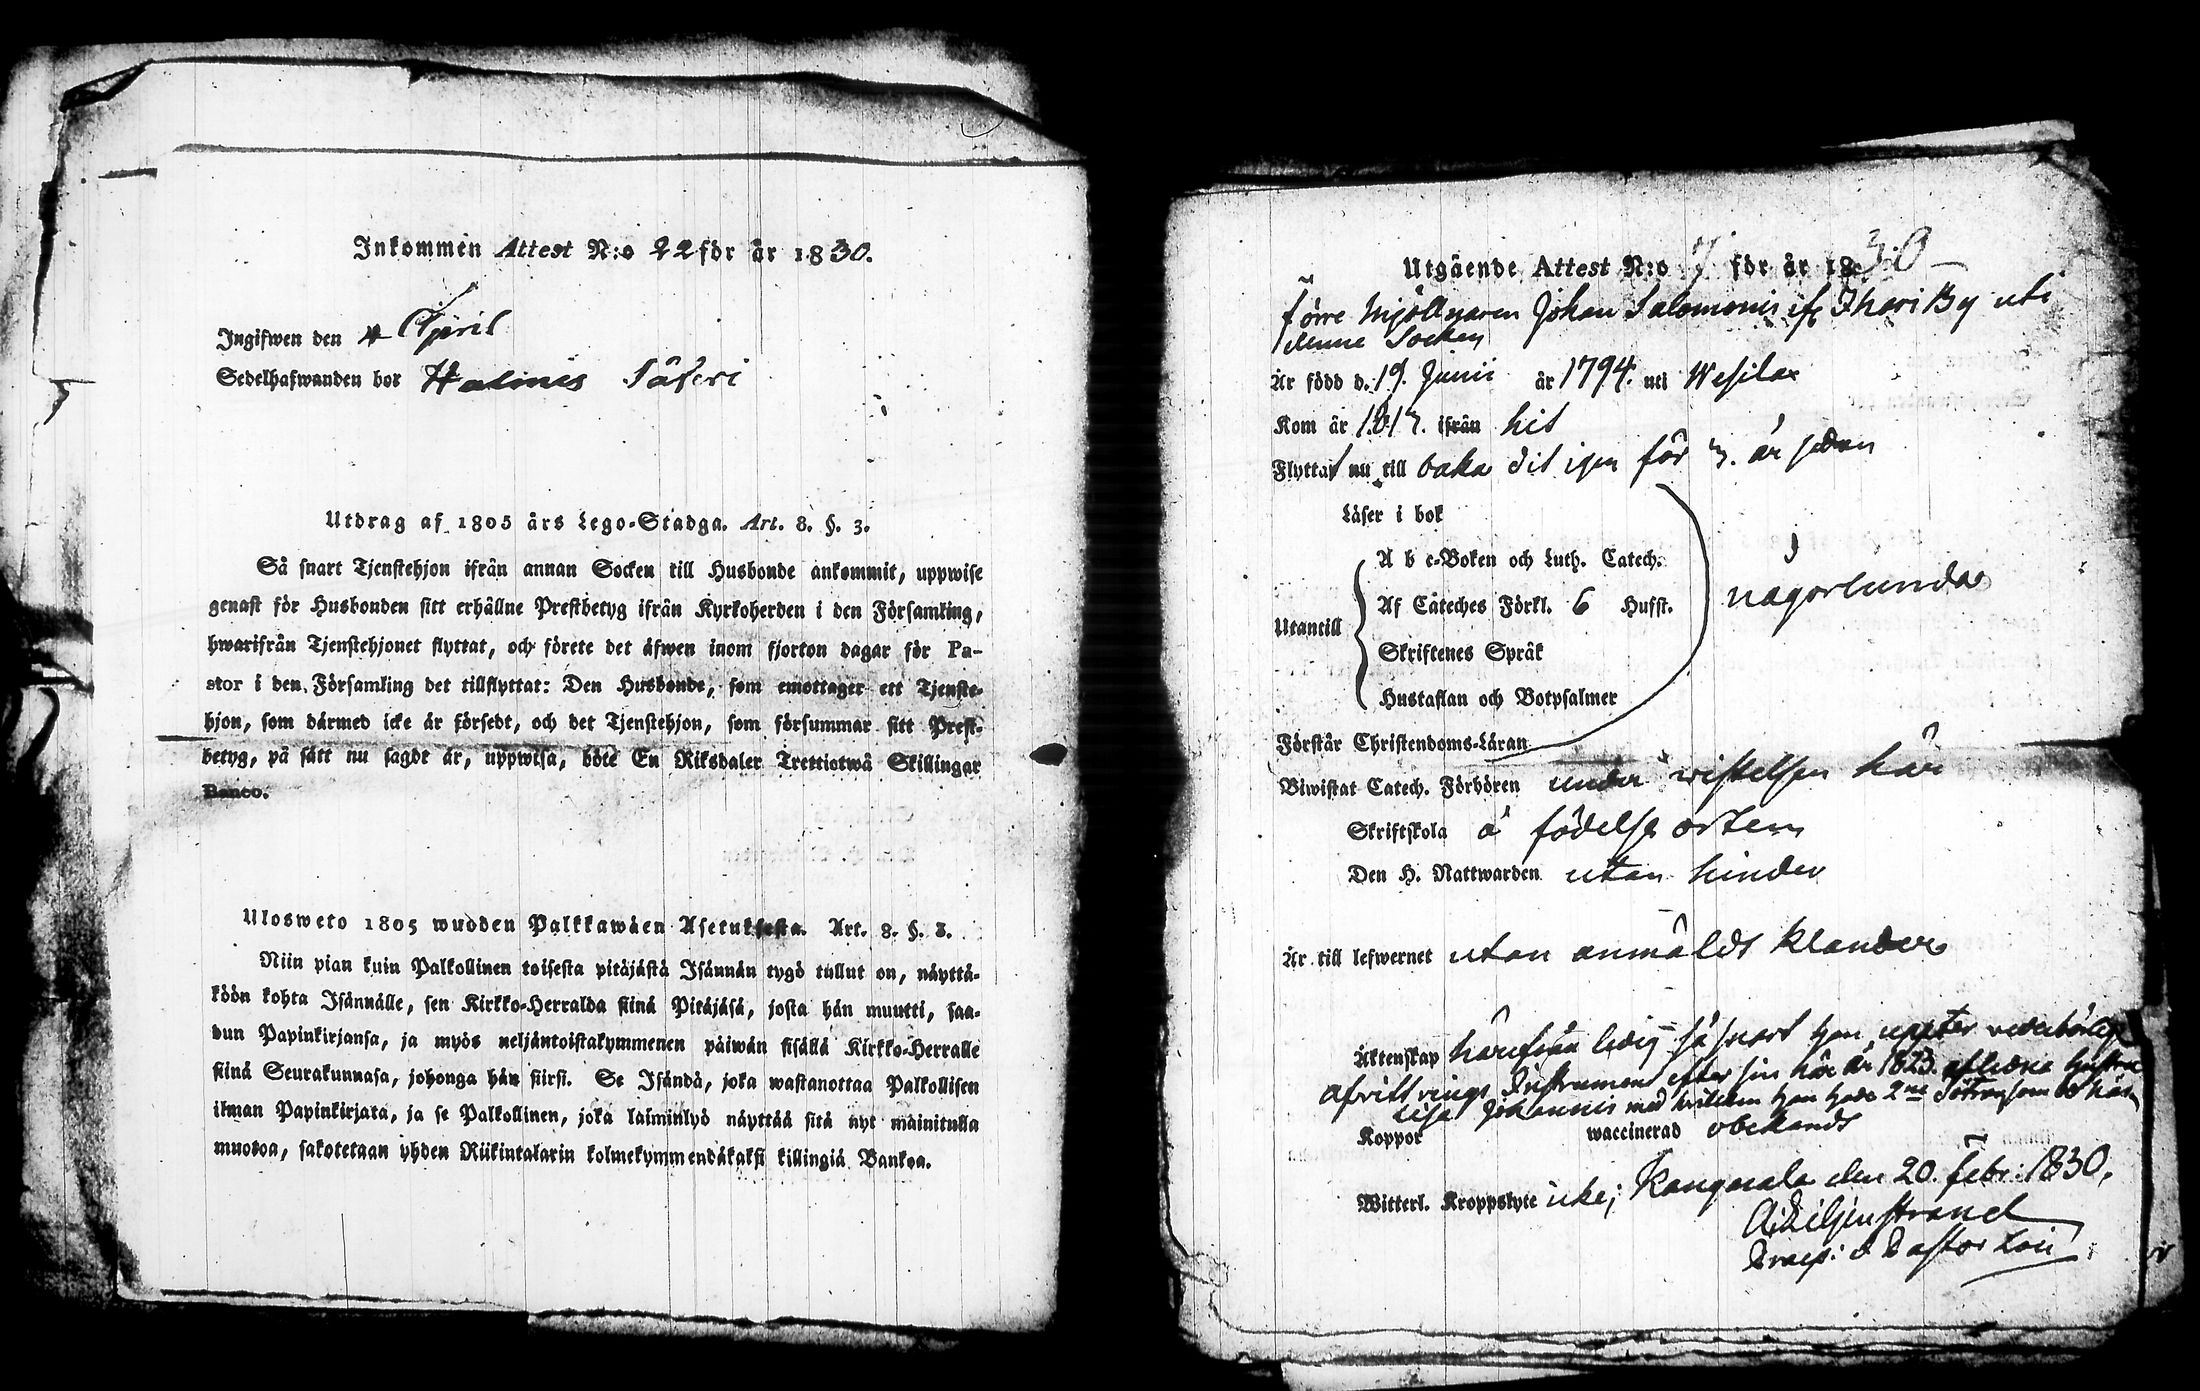 Inkommen Attest N:o 22 för år 1830.
Ingifwen den 4 April
Sedelhafwanden bor Halmis Säteri
Utdrag af 1805 års Lego-Stadga. Art. 8. §. 3.
Så snart Tjenstehjon ifrån annan Socken till Husbonde ankommit, uppwise
genast för Husbonden sitt erhållne Prestbetyg ifrån Kyrkoherden i den Församling,
hwarifrån Tjenstehjonet flyttat, och förete det äfwen inom fjorton dagar för Pa-
stor i den Församling det tillflyttat: Den Husbonde, som emottager ett Tjenste-
hjon, som därmed icke är försedt, och det Tjenstehjon, som försummar sitt Prest-
betyg, på sätt nu sagdt är, uppwisa, böte En Riksdaler Trettiotwå Skillingar
Banco.
Ulosweto 1805 wuoden Palkkawäen Asetuksesta. Art. 8. §. 3.
Niin pian kuin Palkollinen toisesta pitäjästä Isännän tygö tullut on, näyttä-
köön kohta Isännälle, sen Kirkko-Herralda siinä Pitäjäsä, josta hän muutti, saa-
dun Papinkirjansa, ja myös neljäntoistakymmenen päiwän sisällä Kirkko-Herralle
siinä Seurakunnasa, johonga hän siirsi. Se Isändä, joka wastanottaa Palkollisen
ilman Papinkirjata, ja se Palkollinen, joka laiminlyö näyttää sitä nyt mainitulla
muotoa, sakotetaan yhden Riikintalarin kolmekymmendäkaksi killingiä Bankoa.
Utgående Attest N:o 7 för år 1830
förre Mjöllnaren Johan Salomonis if. Ihari By uti
denne Socken
Är född d. 19. Junii år 1794. uti Wesilax
Kom år 1817. ifrån hit
Flyttat nu till baka dit igen för 7. år sedan
Läser i bok
A b c-Boken och Luth. Catech.
Af Cateches Förkl. 6 Hufst.
någorlunda
Utantill
Skriftenes Språk
Hustaflan och Botpsalmer
Förstår Christendoms-Läran
Biwistat Catech. Förhören under wistelsen här
Skriftskola å födelse orten
Den H. Nattwarden utan hinder
Är till lefwernet utan anmäldt klander
Äktenskap härifrån ledig så snart han uppter vederbörlig
afvittrings Instrument efter sin här år 1823. aflidna hustru
Lisa Johannis med hvilken han hade 2ne
Koppor waccinerad obekandt
Witterl. Kroppslyte icke; Kangasala den 20. Febr: 1830.
A: Liljenstrand
Praep: o Pastor Loci